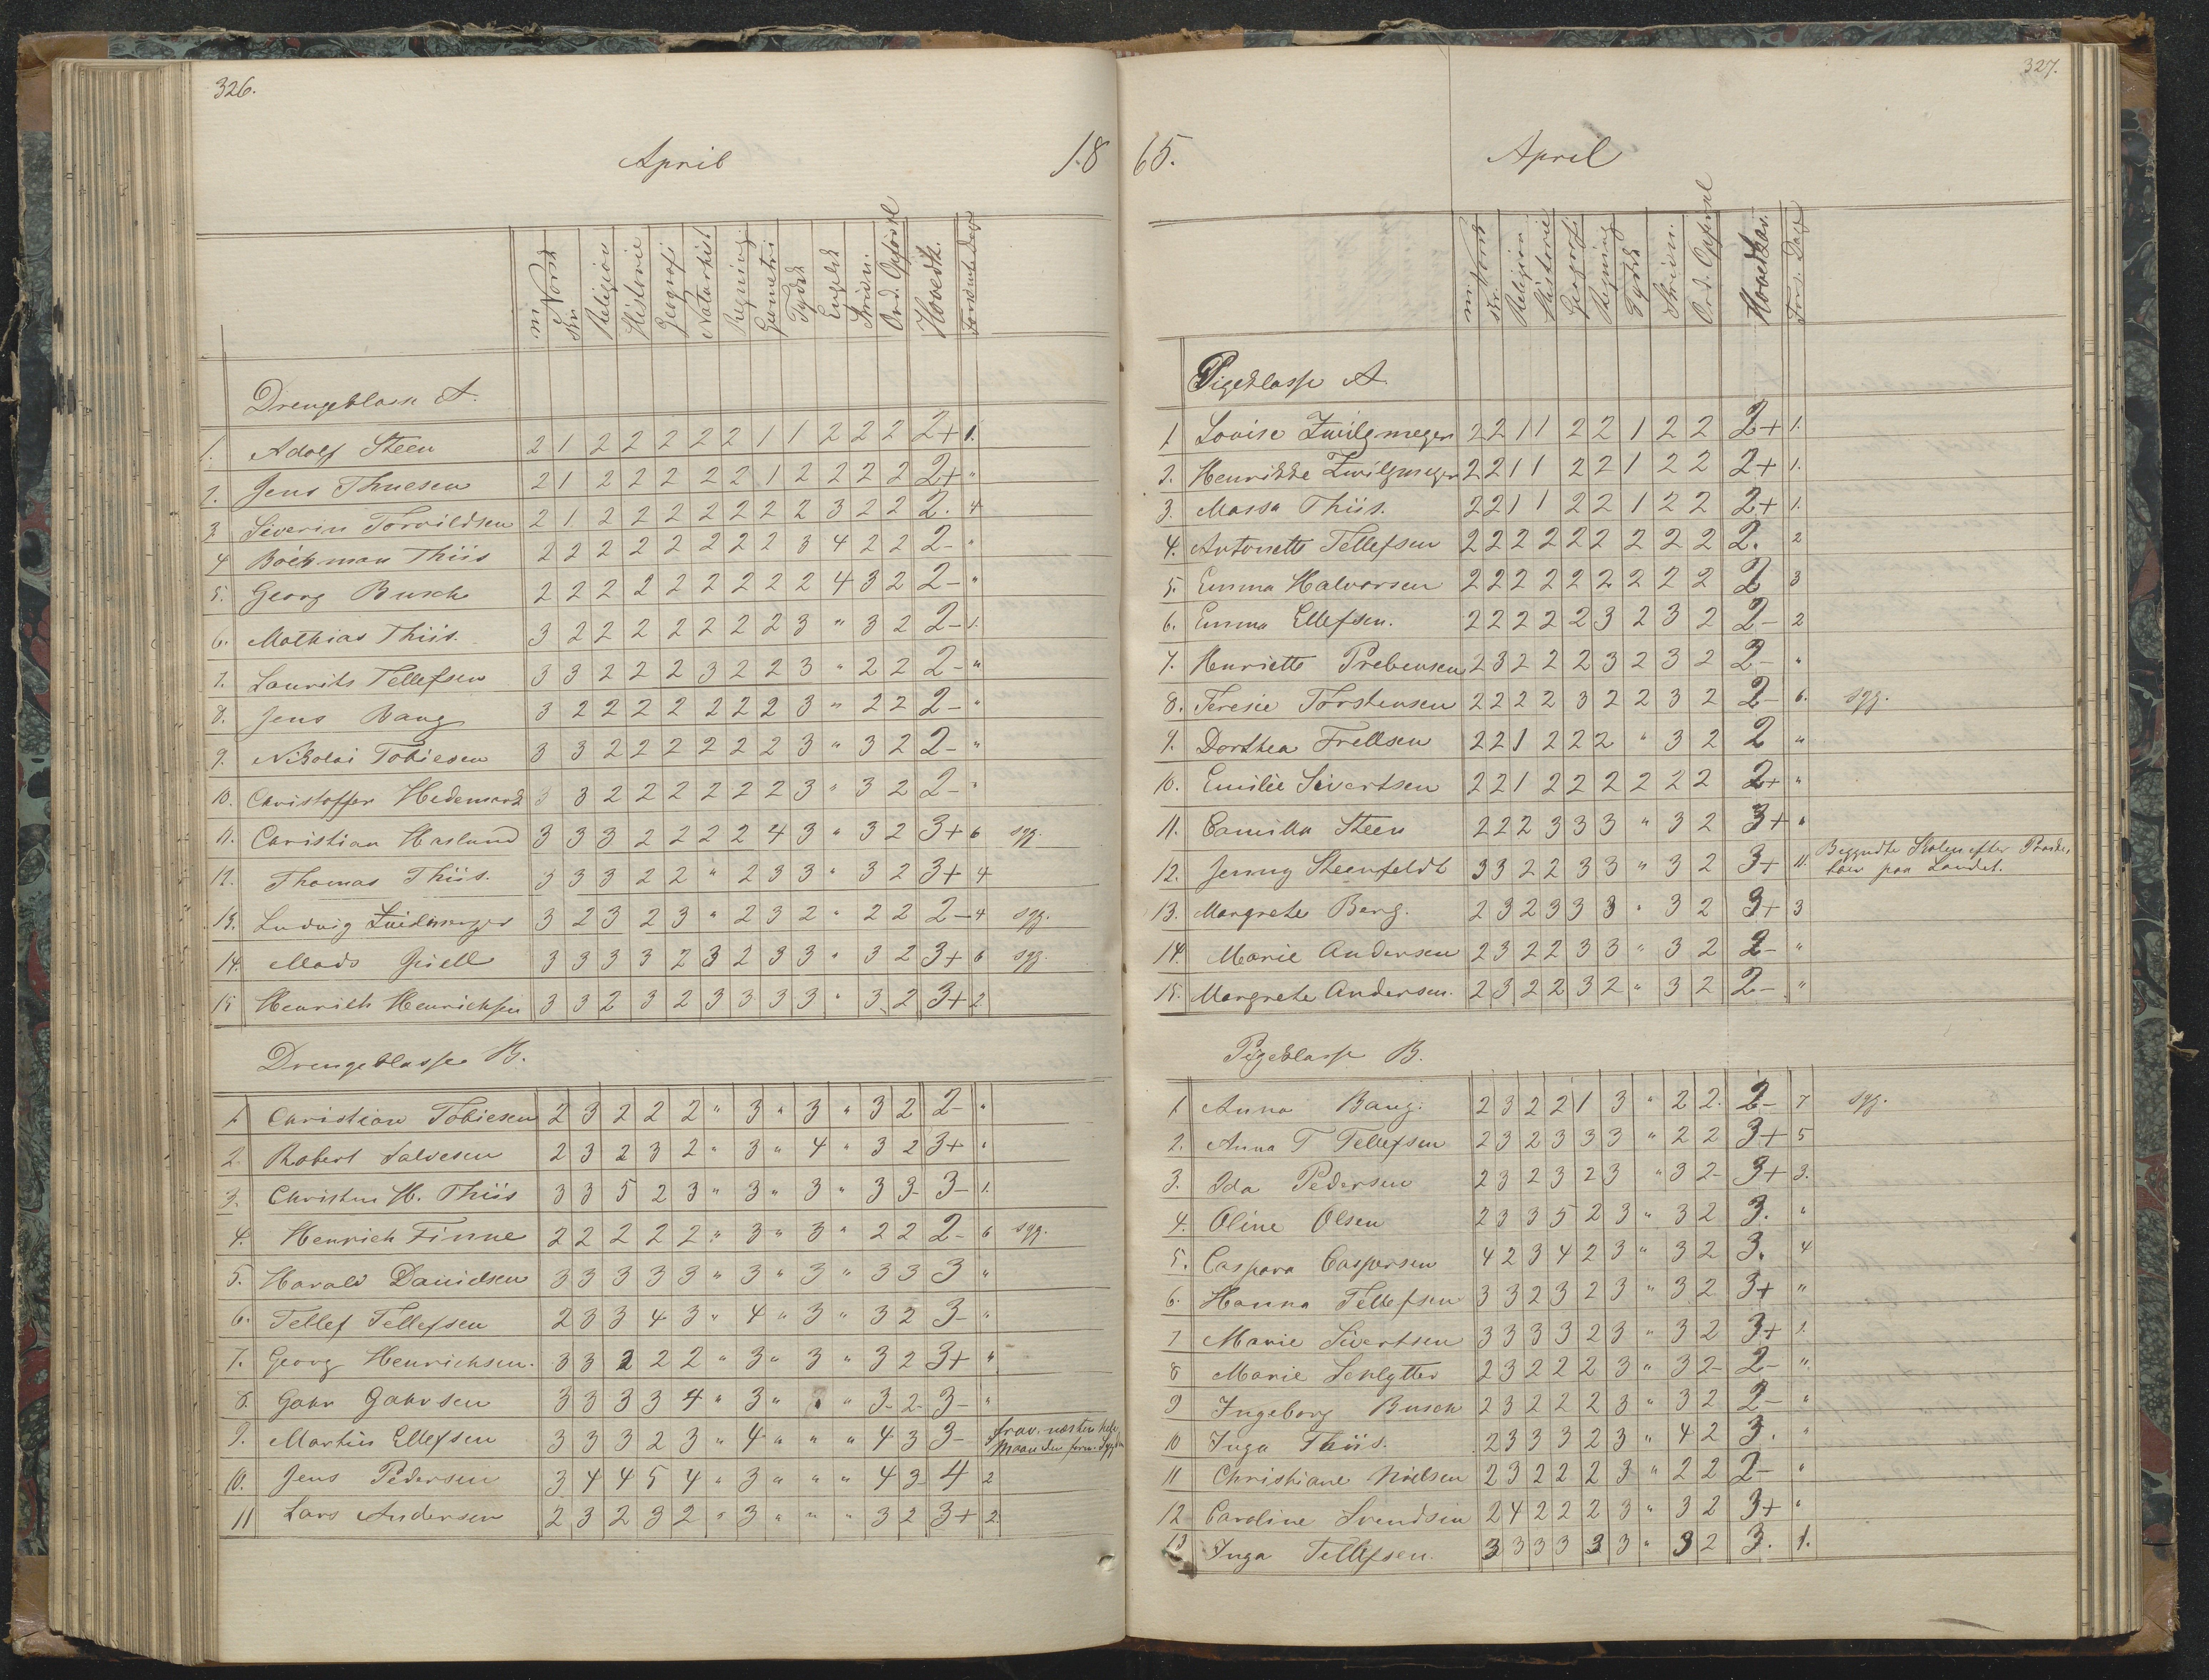 326.
April
18
m. Norsk Skr. Religion Historie Geografi Naturhist Regning Geometri Tydsk Engelsk Skrivn. Ord. Opførsel Hovedk. Forsømte Dage
Drengeklasse A.
1. Adolf Steen 2 1 2 2 2 2 2 1 1 2 2 2 2+ 1.
2. Jens Thuesen 2 1 2 2 2 2 2 1 2 2 2 2 2+ "
3 Siverin Torvildsen 2 1 2 2 2 2 2 2 2 3 2 2 2. 4
4 Böckman Thiis 2 2 2 2 2 2 2 2 3 4 2 2 2- "
5. Georg Busch 2 2 2 2 2 2 2 2 2 4 3 2 2- "
6. Mathias Thiis. 3 2 2 2 2 2 2 2 3 " 3 2 2- 1.
7. Laurits Tellefsen 3 3 2 2 2 3 2 2 3 " 2 2 2- "
8. Jens Bang 3 2 2 2 2 2 2 2 3 " 2 2 2- "
9. Nikolai Tobiesen 3 3 2 2 2 2 2 2 3 " 3 2 2- "
10. Christoffer Hedemark 3 3 2 2 2 2 2 2 3 " 3 2 2- "
11. Christian Haslund 3 3 3 2 2 2 2 4 3 " 3 2 3+ 6 syg.
12. Thomas Thiis. 3 3 3 2 2 " 2 3 3 " 3 2 3+ 4
13. Ludvig Zwilgmeyer 3 2 3 2 3 " 2 3 2 " 2 2 2- 4 syg.
14. Mads Juell 3 3 3 3 2 3 2 3 3 " 3 2 3+ 6 syg.
15 Henrich Henrichsen 3 3 2 3 2 3 3 3 3 " 3 2 3+ 2
Drengeklasse B.
1 Christian Tobiesen 2 3 2 2 2 " 3 " 3 " 3 2 2- "
2. Robert Salvesen 2 3 2 3 2 " 3 " 4 " 3 2 3+ "
3. Christen H. Thiis 3 3 5 2 3 " 3 " 3 " 3 3 3- 1.
4. Henrich Finne 2 2 2 2 2 " 3 " 3 " 2 2 2- 6 syg.
5. Harald Danielsen 3 3 3 3 3 " 3 " 3 " 3 3 3 "
6. Tellef Tellefsen 2 3 3 4 3 " 4 " 3 " 3 2 3- "
7. Georg Henrichsen. 3 3 2 2 2 " 3 " 3 " 3 2 3+ "
8. Gahr Gahrsen 3 3 3 3 4 " 3 " " 3 2 3- "
9. Martin Ellefsen 3 3 3 2 3 " 4 " " " 4 3 3- frav. næsten hele
Maaneden form. Sygdom
10. Jens Pedersen 3 4 4 5 4 " 3 " " " 4 3 4 2
11 Lars Andersen 2 3 2 3 2 " 3 " " " 3 2 3+ 2.
327.
65.
April
m. Norsk Skr. Religion Historie Geografi Regning Tydsk Skrivn. Ord. Opførsel Hovedkar. Fors. Dage
Pigeklasse A.
1 Lovise Zwilgmeyer 2 2 1 1 2 2 1 2 2 2+ 1.
2. Henrikke Zwilgmeyer 2 2 1 1 2 2 1 2 2 2+ 1.
3. Massa Thiis. 2 2 1 1 2 2 1 2 2 2+ 1.
4. Antonette Tellefsen 2 2 2 2 2 2 2 2 2 2. 2
5. Emma Halvorsen 2 2 2 2 2 2 2 2 2 2 3
6. Emma Ellefsen. 2 2 2 2 2 3 2 3 2 2- 2
7. Henriette Prebensen 2 3 2 2 2 3 2 3 2 2- "
8. Teresie Torstensen 2 2 2 2 3 2 2 3 2 2- 6. syg.
9. Dorthea Trellsen 2 2 1 2 2 2 " 3 2 2 "
10. Emilie Sivertsen 2 2 1 2 2 2 2 2 2 2+ "
11. Camilla Steen 2 2 2 3 3 3 " 3 2 3+ "
12. Jenny Steenfeldt 3 3 2 2 3 3 " 3 2 3+ 11. Begyndte Skolen efter Paaske,
paa Landet.
13. Margrete Berg. 2 3 2 3 3 3 " 3 2 3+ 3
14. Marie Andersen 2 3 2 2 3 3 " 3 2 2- "
15. Margrete Andersen. 2 3 2 2 3 2 " 3 2 2- "
Pigeklasse B.
1 Anna Bang. 2 3 2 2 1 3 " 2 2. 2- 7 syg.
2. Anna T Tellefsen 2 3 2 3 3 3 " 2 2 3+ 5
3. Ida Pedersen 2 3 2 3 2 3 " 3 2 3+ 3.
4. Oline Olsen 2 3 3 5 2 3 " 3 2 3. "
5. Caspara Caspersen 4 2 3 4 2 3 " 3 2 3. 4
6. Hanna Tellefsen 3 3 2 3 2 3 " 3 2 3+ "
7 Marie Sivertsen 3 3 3 3 2 3 " 3 2 3+ 1.
8 Marie Schlytter 2 3 2 2 2 3 " 3 2 2- "
9 Ingeborg Busch 2 3 2 2 2 3 " 3 2 2- "
10 Inga Thiis. 2 3 3 3 2 3 " 4 2 3. "
11 Christiane Nielsen 2 3 2 2 2 3 " 2 2 2- "
12 Caroline Svendsen 2 4 2 2 2 3 " 3 2 3+ "
13 Inga Tellefsen. 3 3 3 3 3 3 " 3 2 3. 1.